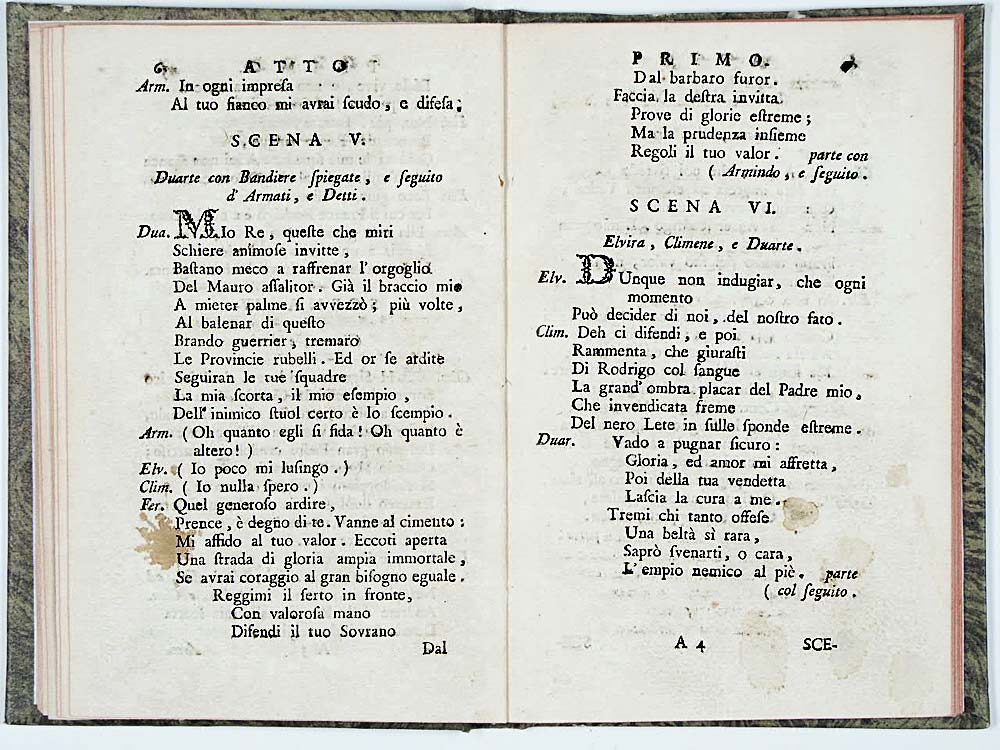 6 ATTO
Arm. In ogni impreſa
Al tuo fianco mi avrai ſcudo, e difeſa;
SCENA V.
Duarte con Bandiere ſpiegate, e ſeguito
d' Armati, e Detti.
Dua. MIo Re, queſte che miri
Schiere animoſe invitte,
Baſtano meco a raffrenar l' orgoglio
Del Mauro aſſalitor. Già il braccio mio
A mieter palme ſi avvezzò; più volte,
Al balenar di queſto
Brando guerrier, tremaro
Le Provincie rubelli. Ed or ſe ardite
Seguiran le tue ſquadre
La mia ſcorta, il mio eſempio,
Dell' inimico ſtuol certo è lo ſcempio.
Arm. (Oh quanto egli ſi fida! Oh quanto è
altero!)
Elv. (Io poco mi luſingo.)
Clim. (Io nulla ſpero.)
Fer. Quel generoſo ardire,
Prence, è degno di te. Vanne al cimento:
Mi affido al tuo valor. Eccoti aperta
Una ſtrada di gloria ampia immortale,
Se avrai coraggio al gran biſogno eguale.
Reggimi il ſerto in fronte,
Con valoroſa mano
Difendi il tuo Sovrano
Dal
PRIMO. 7
Dal barbaro furor.
Faccia la deſtra invitta
Prove di glorie eſtreme;
Ma la prudenza inſieme
Regoli il tuo valor. parte con
(Armindo, e ſeguito.
SCENA VI.
Elvira, Climene, e Duarte.
Elv. DUnque non indugiar, che ogni
momento
Può decider di noi, del noſtro fato.
Clim. Deh ci difendi, e poi
Rammenta, che giuraſti
Di Rodrigo col ſangue
La grand' ombra placar del Padre mio,
Che invendicata freme
Del nero Lete in ſulle ſponde eſtreme.
Duar. Vado a pugnar ſicuro:
Gloria, ed amor mi affretta,
Poi della tua vendetta
Laſcia la cura a me.
Tremi chi tanto offeſe
Una beltà sì rara,
Saprò ſvenarti, o cara,
L' empio nemico al piè. parte
(col ſeguito.
A 4 SCE-